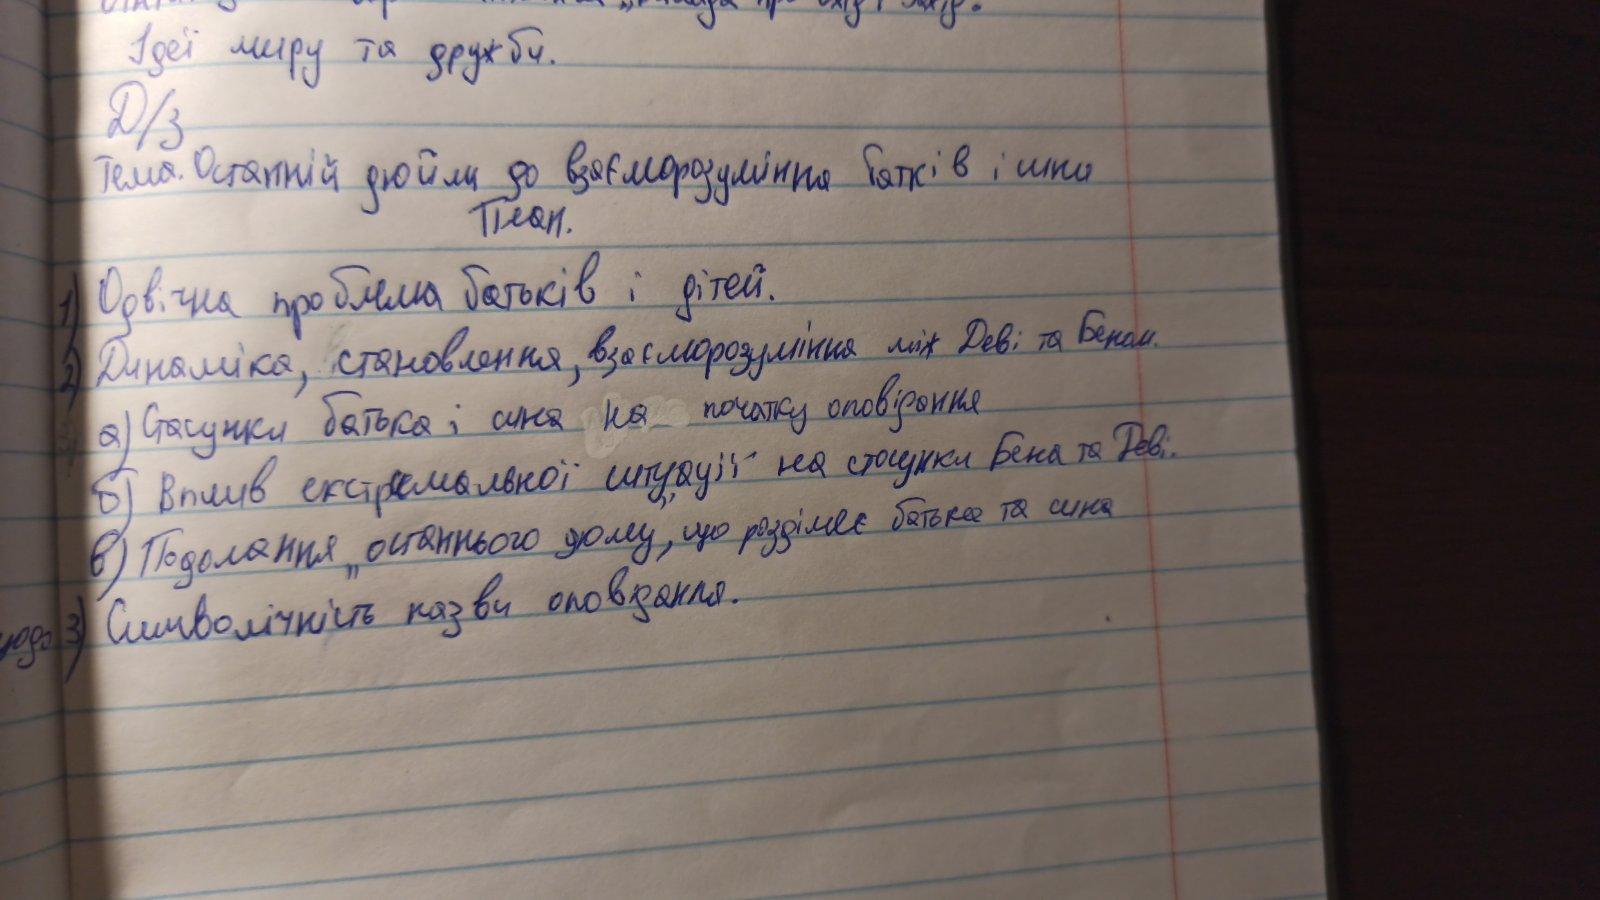 Ідеї миру та дружби.
Д/З
Тема. Останній дюйм до взаєморозуміння батків і сина
План.
1) Одвічна проблема батьків і дітей.
2) Динаміка, становлення, взаєморозуміння між Деві та Беном.
а) Стосунки батька і сина на початку оповідання
б) Вплив екстремальної ситуації на стосунки Бена та Деві.
в) Подолання „останнього дюму", що розділяє батька та сина
3) Символічність назви оповідання.